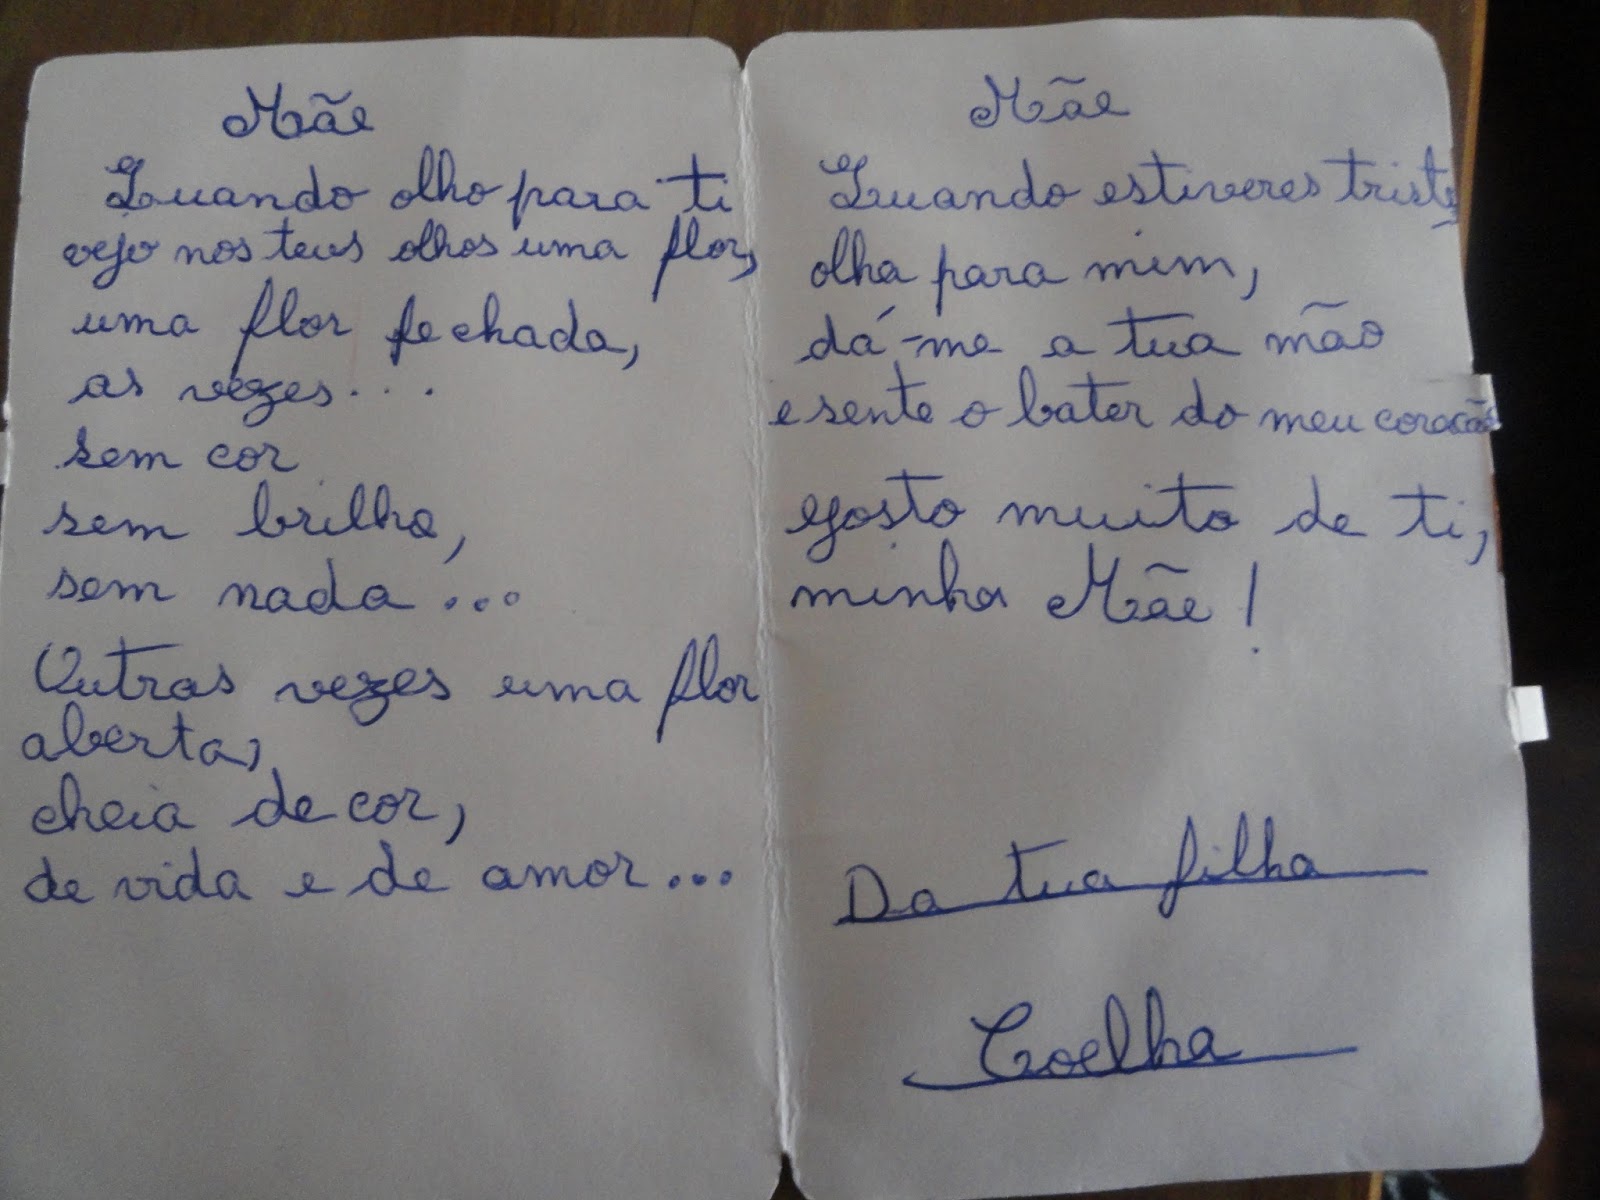 Mãe
Quando olho para ti
vejo nos teus olhos uma flor,
uma flor fechada,
as vezes...
sem cor
sem brilho,
sem nada...
Outras vezes uma flor
aberta,
cheia de cor,
de vida e de amor...
Mãe
Quando estiveres triste,
olha para mim,
dá-me a tua mão
e sente o bater do meu coração
gosto muito de ti,
minha Mãe!
Da tua filha
Coelha